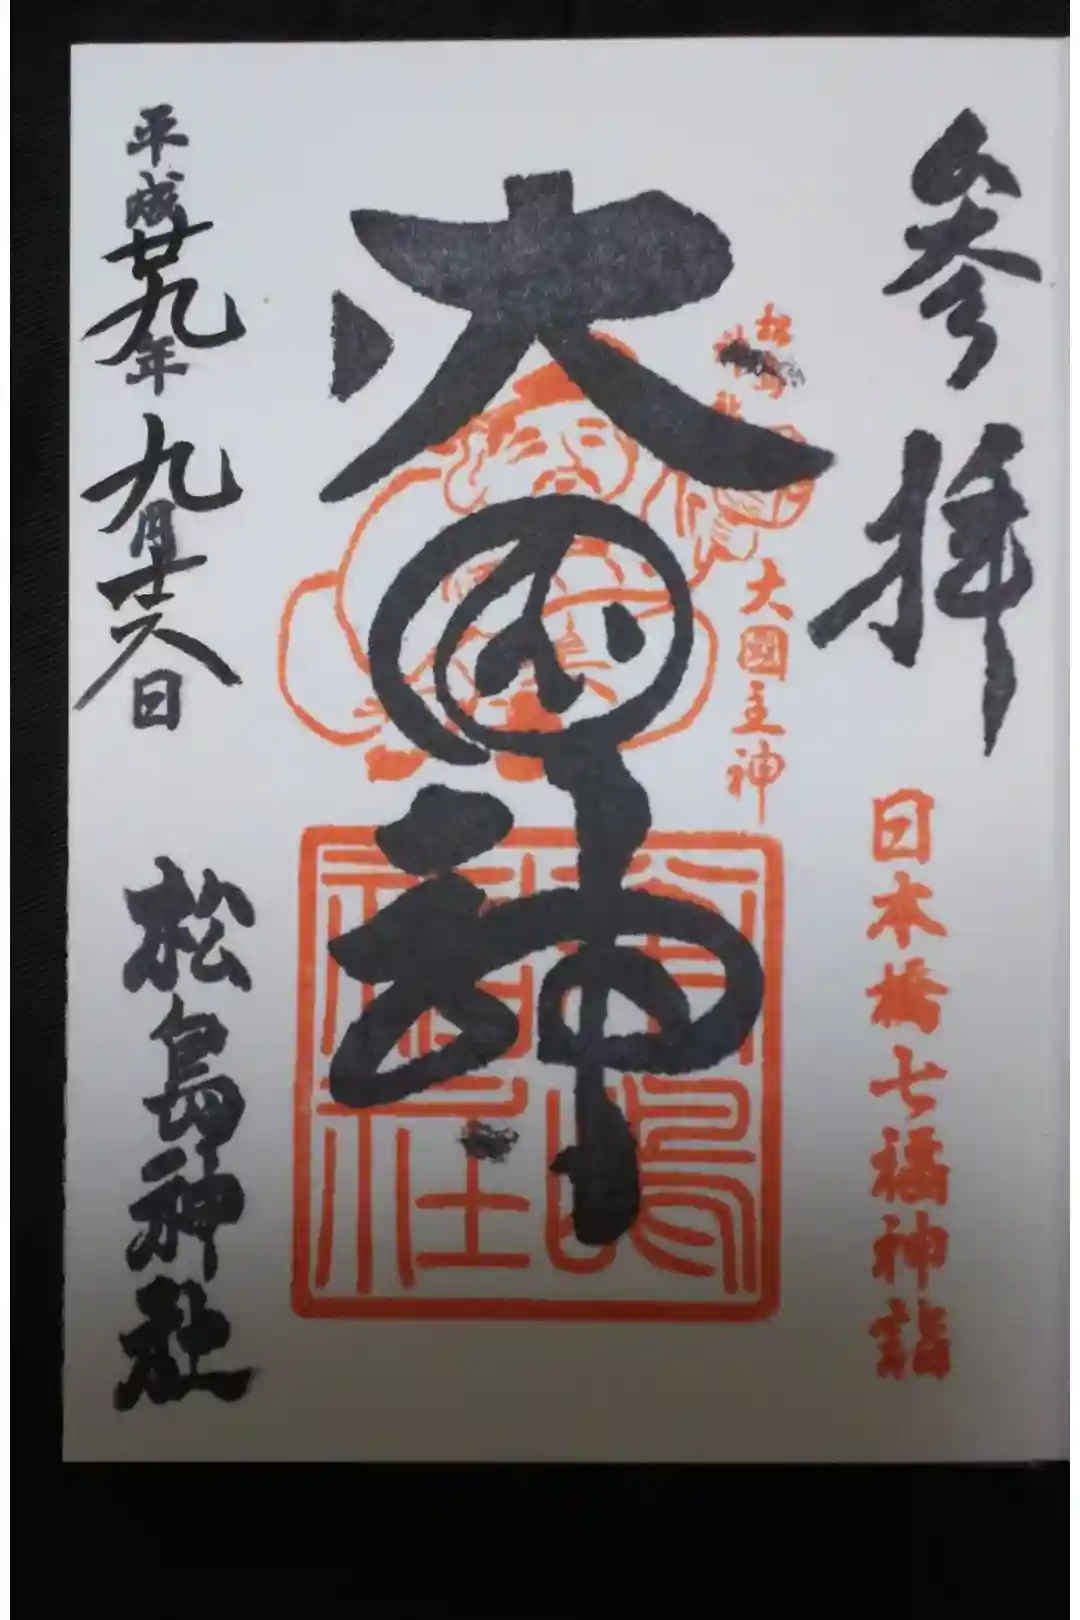 参拝
日本橋七福神詣
松島
神社
大國主神
大国神
松島神社
平成廿九年九月十六日
松島神社